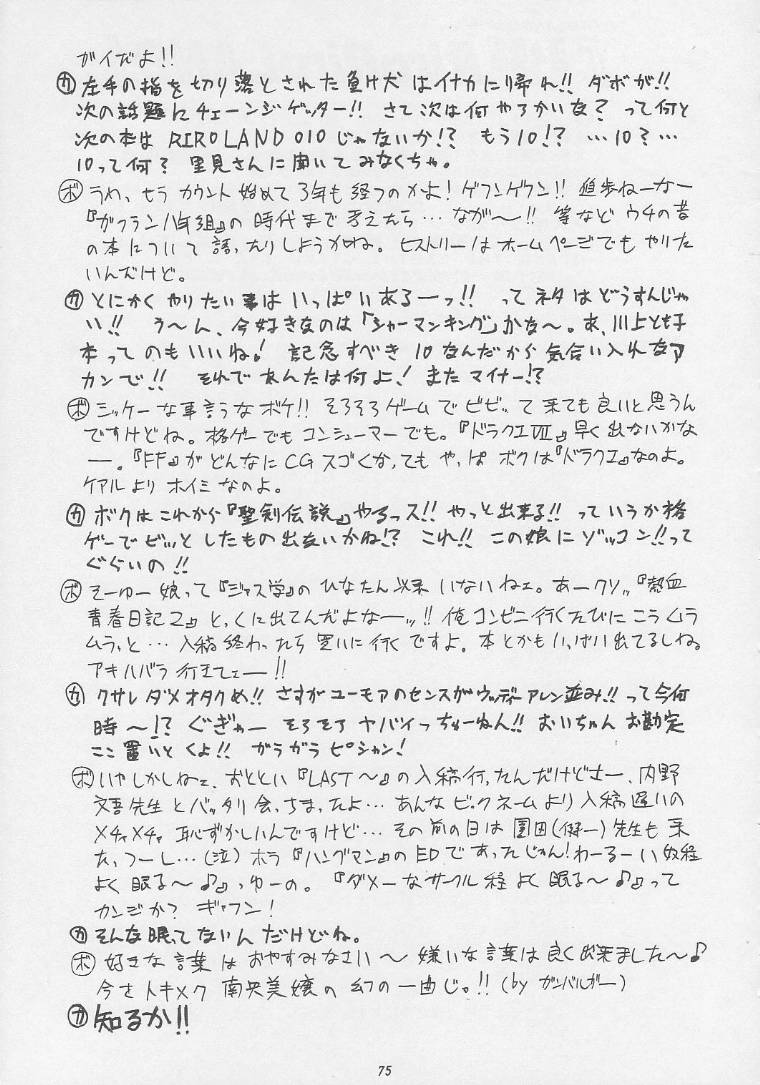 ガイだよ!!
カ 左手の指を切り落とされた負け犬はイナカに帰れ!! ダボが!!
次の話題にチェーンジゲッター!! さて次は何やろかいな? って何と
次の本はRIROLAND 010じゃないか!? もう10!? …10?…
10って何? 里見さんに聞いてみなくちゃ。
ボ うわ、もうカウント始めて3年も経つのかよ! ゲフンゲフン!! 進歩ねーなー
『ガクラン八年組』の時代まで考えたら…なが〜!! 等などウチの昔
の本について語ったりしようかね。ヒストリーはホームページでもやりた
いんだけど。
カ とにかくやりたい事はいっぱいあるーっ!! ってネタはどうすんじゃ
い!! う〜ん、今好きなのは「シャーマンキング」かな〜。あ、川上とも子
本ってのもいいね! 記念すべき10なんだから気合い入れなア
カンで!! それであんたは何よ! またマイナー!?
ボ シッケーな事言うなボケ!! そろそろゲームでビビッて来ても良いと思うん
ですけどね。格ゲーでもコンシューマーでも。『ドラクエVII』早く出ないかな
ー。『FF』がどんなにCGスゴくなってもやっぱボクは『ドラクエ』なのよ。
ケアルよりホイミなのよ。
カ ボクはこれから『聖剣伝説』やるっス!! やっと出来る!! っていうか格
ゲーでビッとしたもの出ないかね!? これ!! この娘にゾッコン!!って
ぐらいの!!
ボ そーゆー娘って『ジャス学』のひなたん以来いないねェ。あークソッ『熱血
青春日記2』とっくに出てんだよなーッ!! 俺コンビニ行くたびにこうムラ
ムラっと…入稿終わったら買いに行くですよ。本とかもいっぱい出てるしね。
アキハバラ行きてェー!!
カ クサレダメオタクめ!! さすがユーモアのセンスがウッディアレン並み!! って今何
時〜!? ぐぎゃー そろそろヤバイっちゅーねん!! おいちゃんお勘定
ここ置いとくよ!! ガラガラピシャン!
ボ いやしかしねェ、おととい『LAST〜』の入稿行ったんだけどさー、内野
文吾先生とバッタリ会っちまったよ…あんなビックネームより入稿遅いの
メチャメチャ恥ずかしいんですけど…その前の日は園田(健一)先生も来
たっつーし…(泣) ホラ『ハングマン』のEDであったじゃん! わーるーい奴程
よく眠る〜♪』っゆーの。『ダメーなサークル程よく眠る〜♪』って
カンジか? ギャフン!
カ そんな眠ってないんだけどね。
ボ 好きな言葉はおやすみなさい〜 嫌いな言葉は良く出来ました〜♪
今さトキメク南央美嬢の幻の一曲じゃ!! (by ガンバルガー)
カ 知るか!!
75